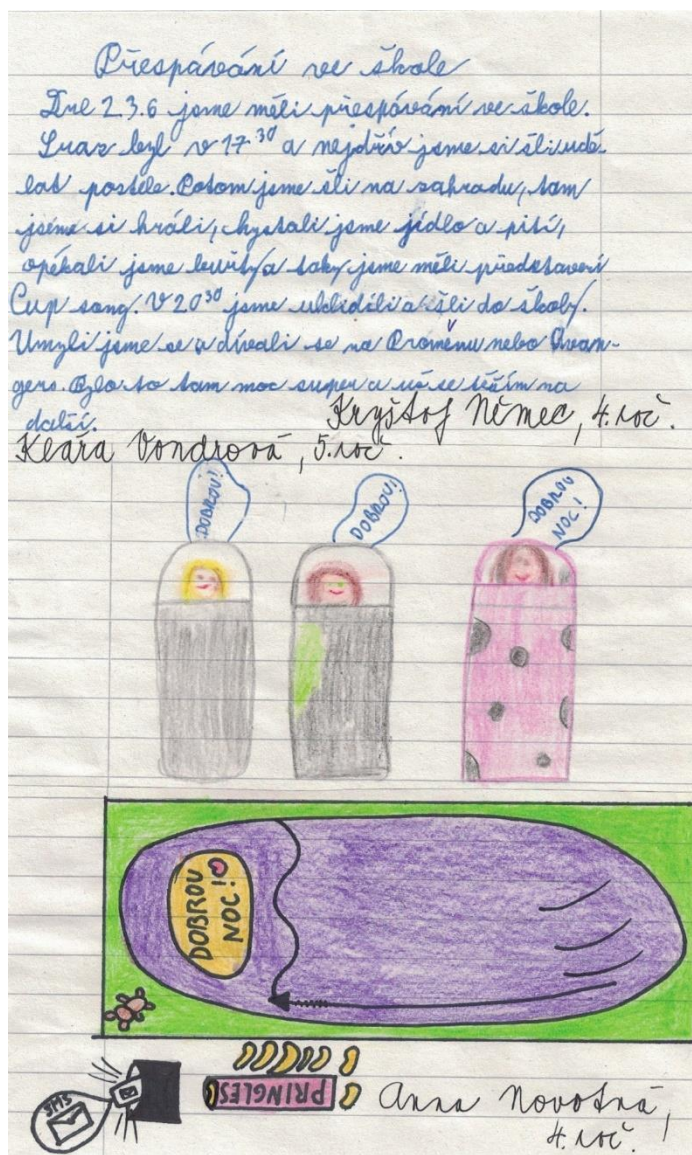 Přespávání ve škole
Dne 2.3.6 jsme měli přespávání ve škole.
Sraz byl v 17 30 a nejdřív jsme si šli udě-
lat postele. Potom jsme šli na zahradu, tam
jsme si hráli, chystali jsme jídlo a pití,
opékali jsme buřty a taky jsme měli představení
Cup song. V 20 30 jsme uklidili a šli do školy.
Umyli jsme se a dívali se na Proměnu nebo
gers. Bylo to tam moc super a už se těším na
další.
Kryštof Němec, 4. roč.
Klára Vondrová, 5. roč.
DOBROU!
DOBROU!
DOBROU
NOC!
DOBROU
NOC!
SMS
PRINGLES
Anna Novotná,
4. roč.!